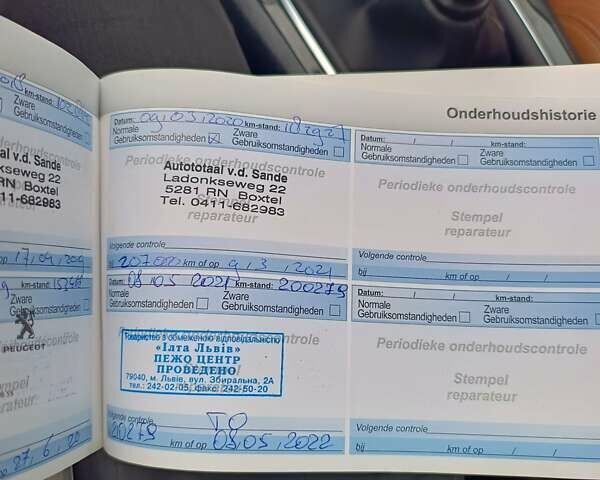 Onderhoudshistorie
Datum: 09,03,2020 km-stand:
Normale Zware
Gebruiksomstandigheden Gebruiksomstandigheden
Periodieke onderhoudscontrole
Autototaal v.d. Sande
Ladonkseweg 22
5281 RN Boxtel
Tel. 0411-682983
Stempel
reparateur
Volgende controle
bij km of op 9,3,2021
Datum: 08,05 2021 km-stand: 200279
Normale Zware
Gebruiksomstandigheden Gebruiksomstandigheden
Periodieke onderhoudscontrole
Товариство з обмеженою відповідальністю
«Ілта Львів»
ПЕЖО ЦЕНТР
ПРОВЕДЕНО
79040, м. Львів, вул. Збиральна, 2А
тел.: 242-02-05, факс: 242-50-20
reparateur
Volgende controle
TO
km of op 08,05,2022
Datum: / / km-stand:
Normale Zware
Gebruiksomstandigheden Gebruiksomstandigheden
Periodieke onderhoudscontrole
Stempel
reparateur
Volgende controle
bij km of op / /
Datum: / / km-stand:
Normale Zware
Gebruiksomstandigheden Gebruiksomstandigheden
Periodieke onderhoudscontrole
Stempel
reparateur
Volgende controle
bij km of op / /
Zware
Gebruiksomstandigheden
onderhoudscontrole
v.d. Sande
22
RN Boxtel
0411-682983
Zware
Gebruiksomstandigheden
PEUGEOT
onderhoudscontrole
Stempel
reparateur